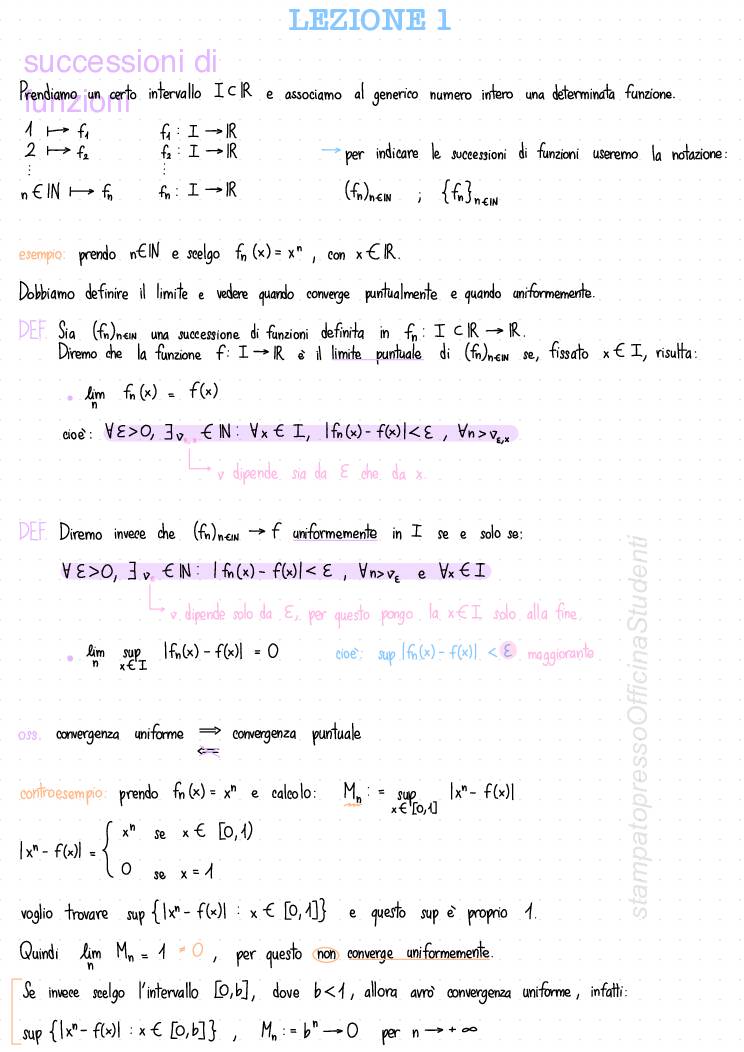 LEZIONE 1
successioni di
funzioni
Prendiamo un certo intervallo I ⊂ ℝ e associamo al generico numero intero una determinata funzione.
1 ⟼ f₁ f₁ : I → ℝ
2 ⟼ f₂ f₂ : I → ℝ → per indicare le successioni di funzioni useremo la notazione:
⋮ ⋮
n ∈ ℕ ⟼ fₙ fₙ : I → ℝ (fₙ)ₙ∈ℕ ; {fₙ}ₙ∈ℕ
esempio: prendo n∈ℕ e scelgo fₙ(x) = xⁿ , con x ∈ ℝ.
Dobbiamo definire il limite e vedere quando converge puntualmente e quando uniformemente.
DEF. Sia (fₙ)ₙ∈ℕ una successione di funzioni definita in fₙ : I ⊂ ℝ → ℝ.
Diremo che la funzione f: I → ℝ è il limite puntuale di (fₙ)ₙ∈ℕ se, fissato x ∈ I, risulta:
• lim fₙ(x) = f(x)
n
cioè: ∀ε>0, ∃ν.. ∈ ℕ : ∀x ∈ I, |fₙ(x) - f(x)| < ε , ∀n > ν_ε,x
ν dipende sia da ε che da x.
DEF. Diremo invece che (fₙ)ₙ∈ℕ → f uniformemente in I se e solo se:
∀ε>0, ∃ν. ∈ ℕ : |fₙ(x) - f(x)| < ε , ∀n > ν_ε e ∀x ∈ I
ν. dipende solo da ε, per questo pongo la x∈I solo alla fine.
• lim sup |fₙ(x) - f(x)| = 0 cioè: sup |fₙ(x) - f(x)| < ε maggiorante
n x∈I
oss. convergenza uniforme ⟹ convergenza puntuale
⟸
controesempio: prendo fₙ(x) = xⁿ e calcolo: Mₙ : = sup |xⁿ - f(x)|
x∈[0,1]
|xⁿ - f(x)| = { xⁿ se x ∈ [0,1)
0 se x = 1
voglio trovare sup {|xⁿ - f(x)| : x ∈ [0,1]} e questo sup è proprio 1.
Quindi lim Mₙ = 1 ≠ 0 , per questo non converge uniformemente.
n
Se invece scelgo l'intervallo [0,b], dove b<1, allora avrò convergenza uniforme, infatti:
sup {|xⁿ - f(x)| : x ∈ [0,b]} , Mₙ : = bⁿ → 0 per n → + ∞
stampatopressoOfficinaStudenti